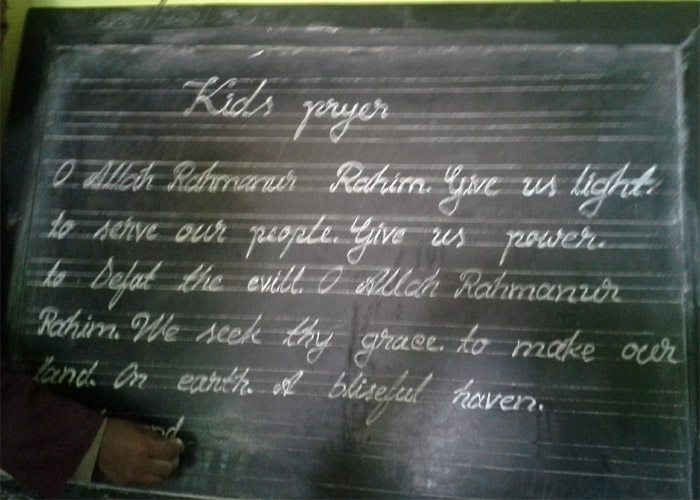 Kids pryer
O Allah Rahmanur Rahim. Give us light.
to serve our people. Give us power.
to Defat the evill. O Allah Rahmanur
Rahim. We seek thy grace. to make our
land. On earth. A bliseful haven.